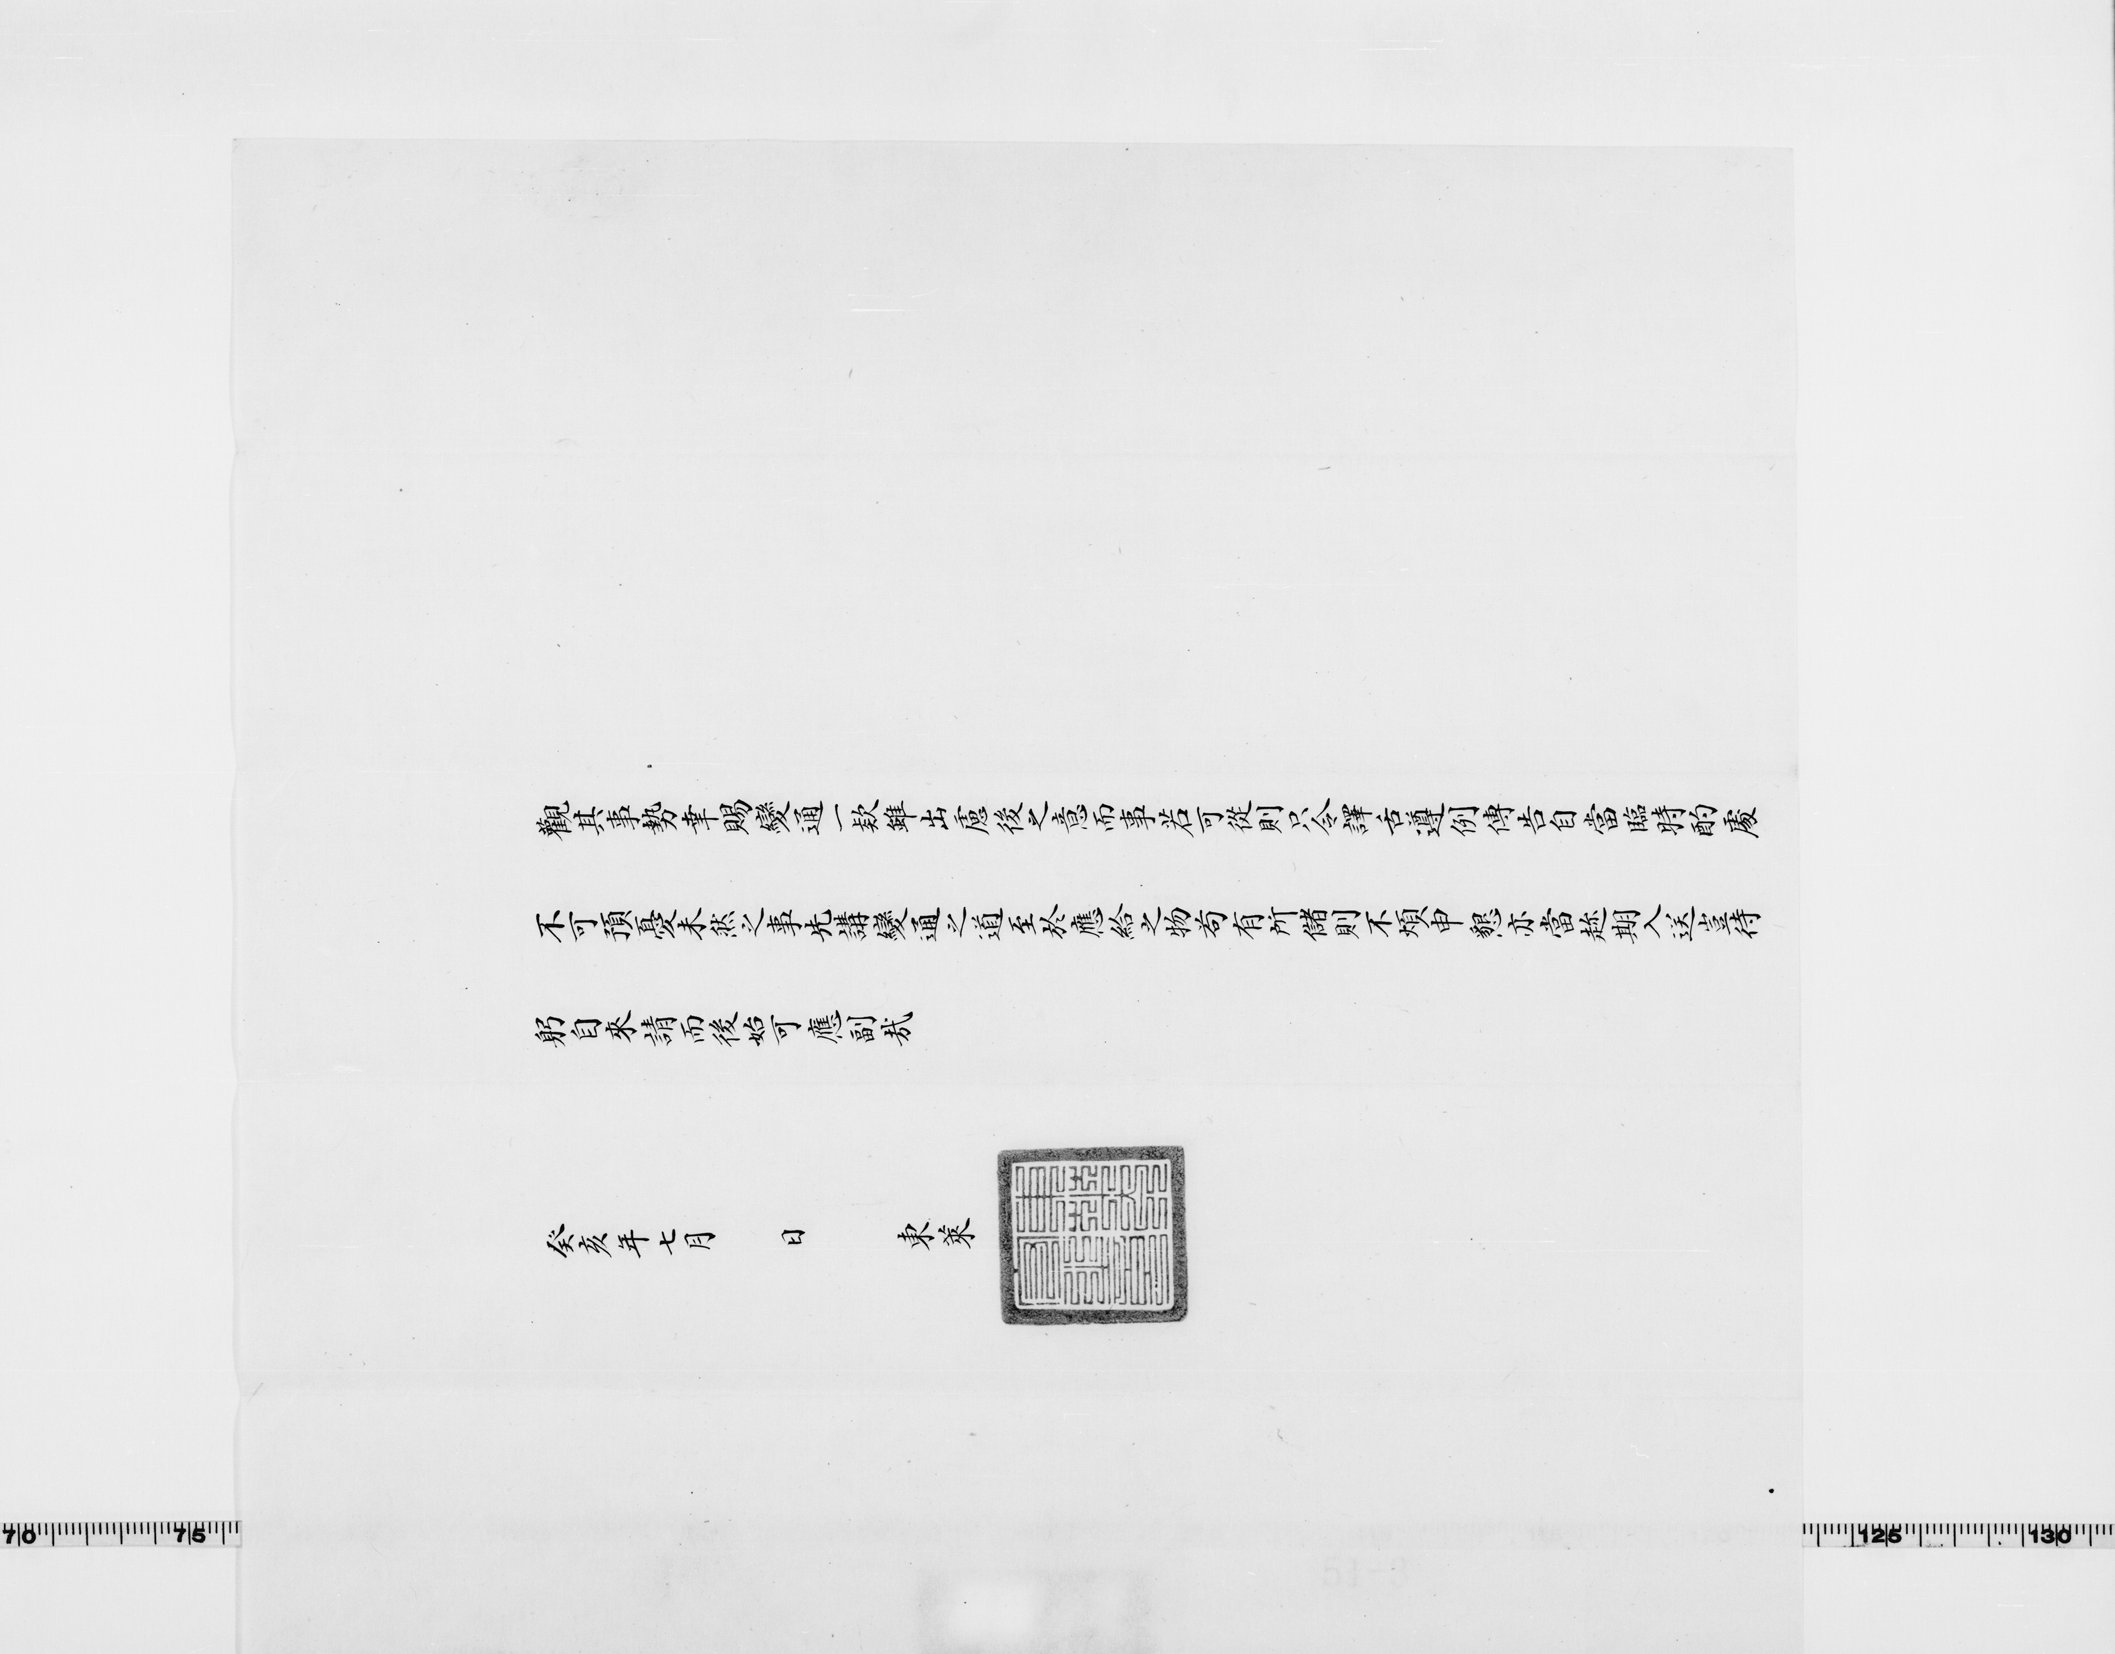 觀其事勢幸賜變通一欵雖出慮後之意而事若可從則只令譯舌遵例傳告自當臨時酌處
不可預憂未然之事先講變通之道至於應給之物苟有所儲則不煩申懇亦當趂期入送豈待
躬自來請而後始可應副哉
癸亥年七月 日 東萊
70 75 125 130